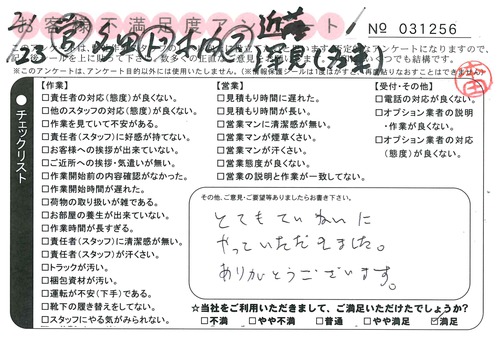 お客様不満足度アンケート
№ 031256
※このアンケートは、アンケート目的以外には使用いたしません。(※情報保護シールは1度はがすと、再度貼りなおすことはできません)
●チェックリスト
【作業】
□責任者の対応(態度)が良くない。
□他のスタッフの対応(態度)が良くない。
□作業を見ていて不安がある。
□責任者(スタッフ)に好感が持てない。
□お客様への挨拶が出来ていない。
□ご近所への挨拶・気遣いが無い。
□作業開始前の内容確認がなかった。
□作業開始時間が遅れた。
□荷物の取り扱いが雑である。
□お部屋の養生が出来ていない。
□作業時間が長すぎる。
□責任者(スタッフ)に清潔感が無い。
□責任者(スタッフ)が汗くさい。
□トラックが汚い。
□梱包資材が汚い。
□運転が不安(下手)である。
□靴下の履き替えをしてない。
□スタッフにやる気がみられない。
【営業】
□見積もり時間に遅れた。
□見積もり時間が長い。
□営業マンに清潔感が無い。
□営業マンが煙草くさい。
□営業マンが汗くさい。
□営業態度が良くない。
□営業の説明と作業が一致してない。
【受付・その他】
□電話の対応が良くない。
□オプション業者の説明
・作業が良くない。
□オプション業者の対応
(態度)が良くない。
その他、ご意見・ご要望等ありましたらお書き下さい。
とてもていねいに
やっていただきました。
ありがとうございます。
☆当社をご利用いただきまして、ご満足いただけたでしょうか?
□不満 □やや不満 □普通 □やや満足 ☑満足